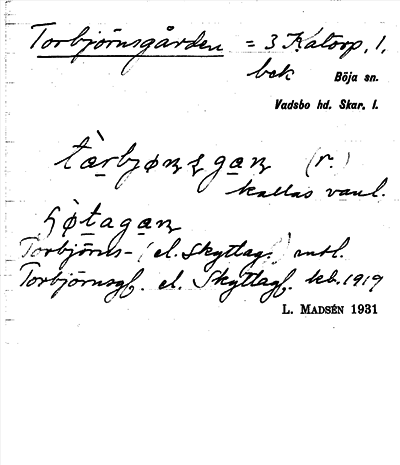 Torbjörnsgården = 3 Katorp, 1.
bek Böja sn.
Vadsbo hd. Skar. l.
tærbjønsgan (r.)
kallas vanl.
Torbjörns- (el. Skyttag.) mtl.
Torbjörnsgf. el. Skyttagf. kb. 1919
L. MADSÉN 1931